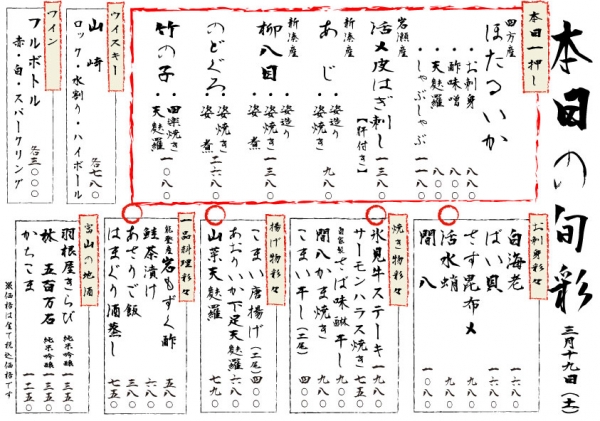 本日の旬彩 三月十九日(土)
本日一押し
四方産
ほたるいか
・お刺身 八八〇
・酢味噌 八八〇
・天麩羅 八八〇
・しゃぶしゃぶ 一一八〇
岩瀬産
活〆皮はぎ刺し【肝付き】 一三八〇
新湊産
あじ ・姿造り 九八〇
新湊産
柳八目 ・姿造り ・姿焼き ・姿煮 一三八〇
のどぐろ ・姿焼き ・姿煮 二六八〇
竹の子 ・田楽焼き ・天麩羅 一〇八〇
ウイスキー
山崎 各七八〇
ロック・水割り・ハイボール
ワイン
フルボトル 各三〇〇〇
赤・白・スパークリング
お刺身彩々
白海老 一六八〇
ばい貝 一六八〇
さす昆布〆 九八〇
活水蛸 九八〇
間八 一〇八〇
焼き物彩々
氷見牛ステーキ 一九八〇
サーモンハラス焼き 七五〇
自家製さば味醂干し 九八〇
間八かま焼き 九八〇
こまい干し(二尾) 四〇〇
揚げ物彩々
こまい唐揚げ(二尾) 四〇〇
あおりいか下足天麩羅 六八〇
山菜天麩羅 七九〇
一品料理彩々
能登産岩もずく酢 五八〇
鮭茶漬け 六八〇
あさりご飯 三八〇
はまぐり酒蒸し 七五〇
富山の地酒
羽根屋きらび 純米吟醸 一三五〇
林 五百万石 純米吟醸 一三五〇
かちこま 一二五〇
※価格は全て税込価格です